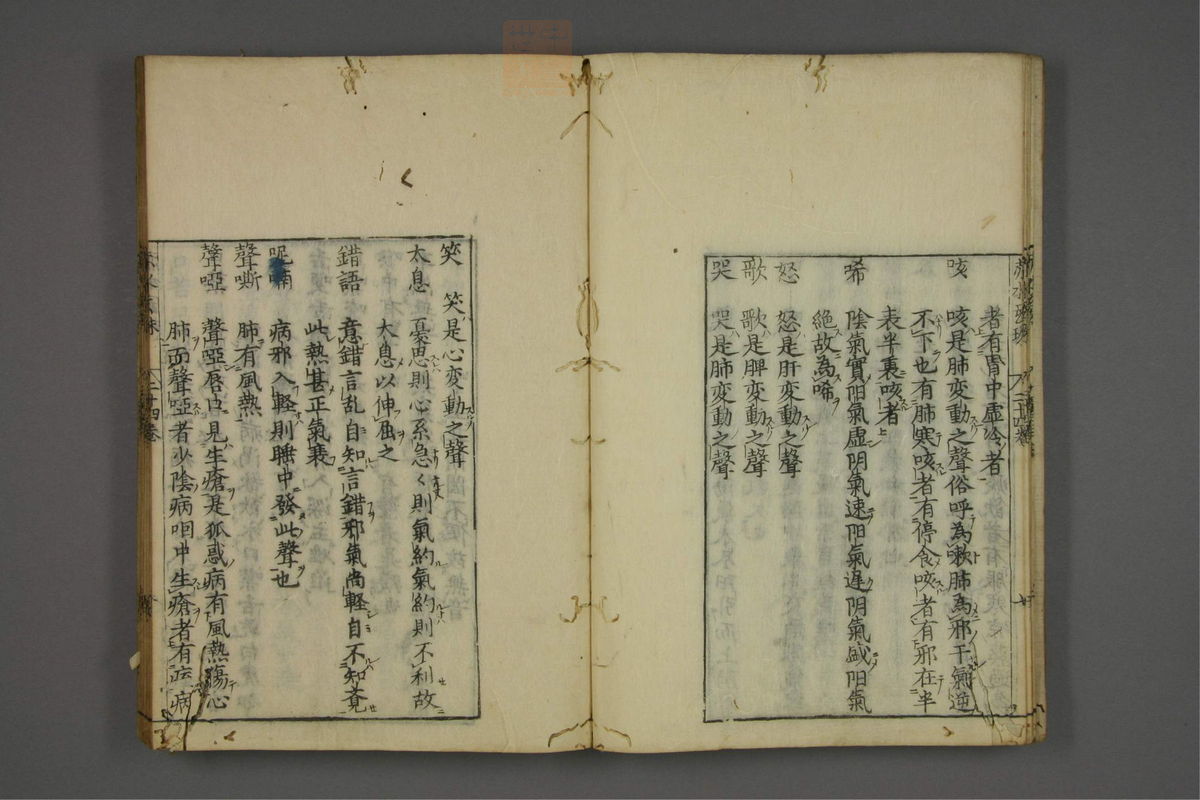 者有胃中虛冷者
咳　咳是肺変動之聲俗呼為嗽肺為邪干氣逆
不下也有肺寒咳者有停食咳者有邪在半
表半裏咳者
唏　陰氣實阳氣虛阴氣速阳氣遲阴氣盛阳氣
絶故為唏
怒　怒是肝変動之聲
歌　歌是脾変動之聲
哭　哭是肺変動之聲
笑　笑是心変動之聲
太息　憂思則心系急〻則氣約氣約則不利故
太息以伸出之
錯語　意錯言乱自知言錯邪氣尚軽自不知覚
此熱甚正氣衰
呢喃　病邪入軽則睡中發此聲也
聲嘶　肺有風熱
聲啞　聲啞唇口見生瘡是狐惑病有風熱傷心
肺而聲啞者少陰病咽中生瘡者有痓病